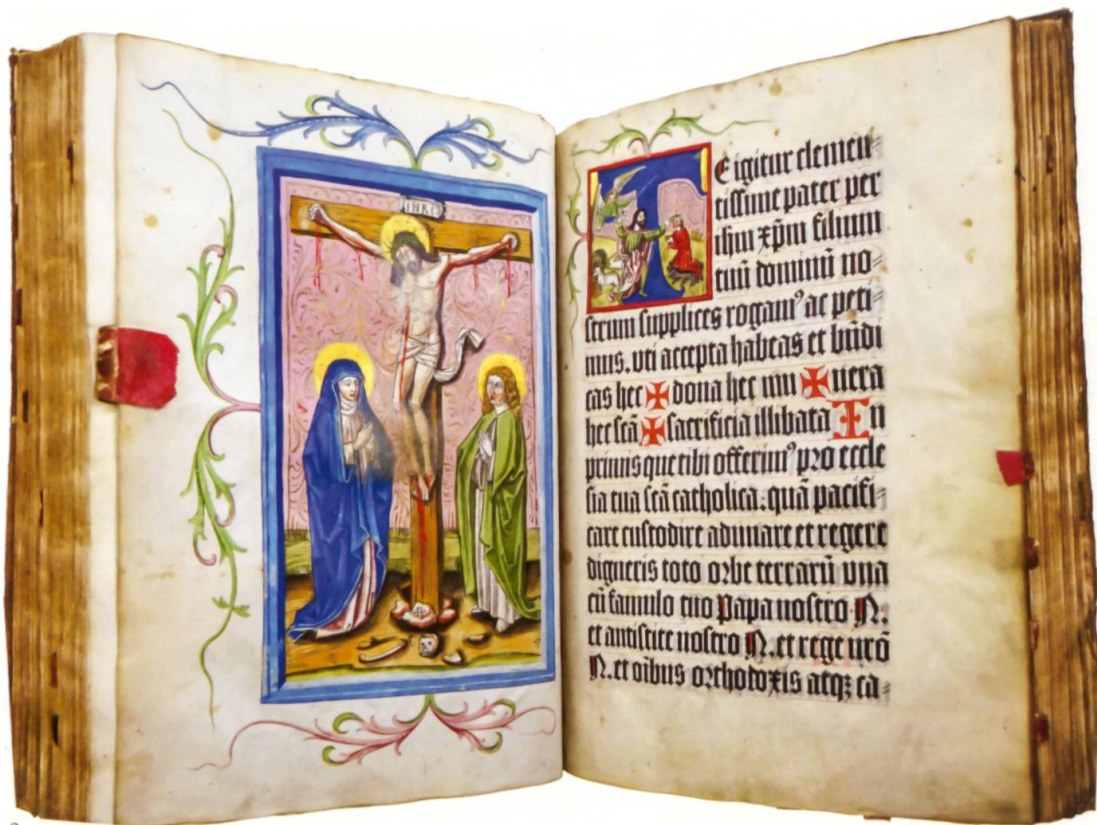 INRI
TE igitur clemen⸗
tissime pater per
ihm xp̄m filium
tuū dominū no⸗
strum supplices rogamꝰ ac peti⸗
mus. vti accepta habeas et bn̄di
cas hec ✠ dona hec mu ✠ nera
hec scā ✠ sacrificia illibata In
primis que tibi offerimꝰ pro eccle
sia tua scā catholica. quā pacifi⸗
care custodire adunare et regere
digneris toto orbe terrarū vna
cū famulo tuo Papa nostro N.
et antistite nostro N. et rege nrō
N. et oībus orthodoxis atqꝫ ca⸗